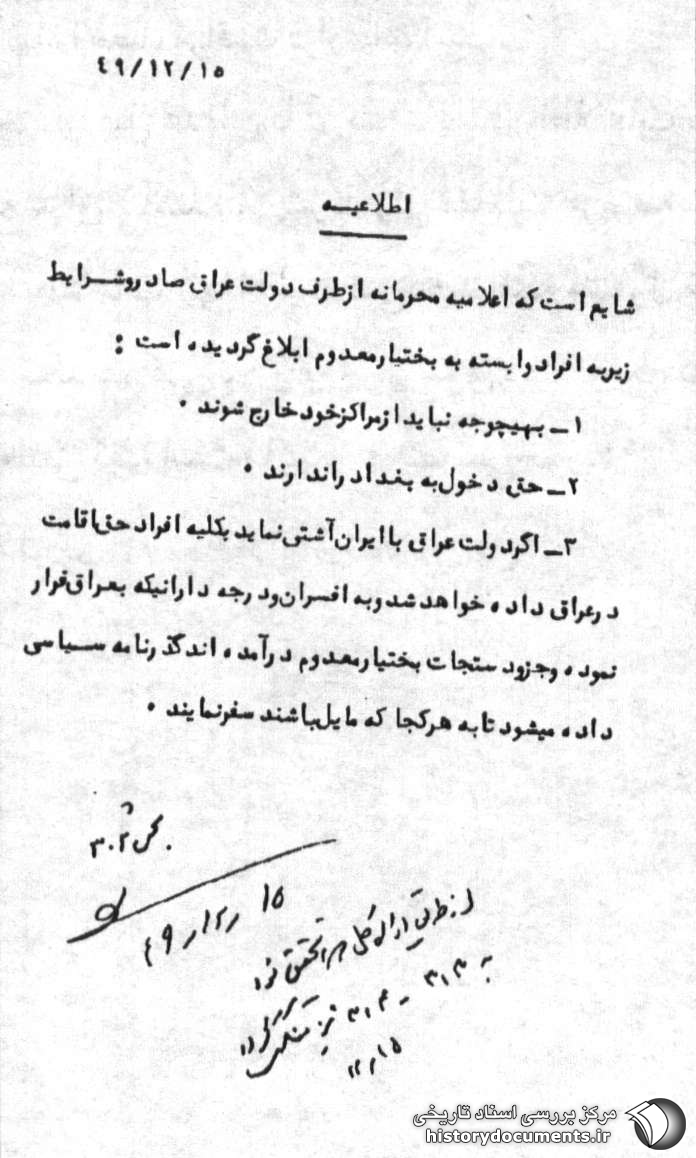 ٤٩/١٢/١٥
اطلاعیه
شایع است که اعلامیه محرمانه ازطرف دولت عراق صادروشرایط
زیربه افراد وابسته به بختیارمعدوم ابلاغ گردیده است :
١ـ بهیچوجه نباید ازمراکزخود خارج شوند ۰
٢ـ حتی دخول به بغداد راندارند ۰
٣ـ اگردولت عراق باایران آشتی نماید بکلیه افراد حق اقامت
درعراق داده خواهد شد وبه افسران ودرجه دارانیکه بعراق فرار
نموده وجزو دستجات بختیارمعدوم درآمده اند گذرنامه سیاسی
داده میشود تابه هرکجا که مایل باشند سفرنمایند ۰
بخش ٣٠٢
٤٩/١٢/١٥
از طریق اداره کل تحقیق
به ٣١٣ - ٣١٤ نیز منعکس گردد
١٢/١٥
مرکز بررسی اسناد تاریخی
historydocuments.ir